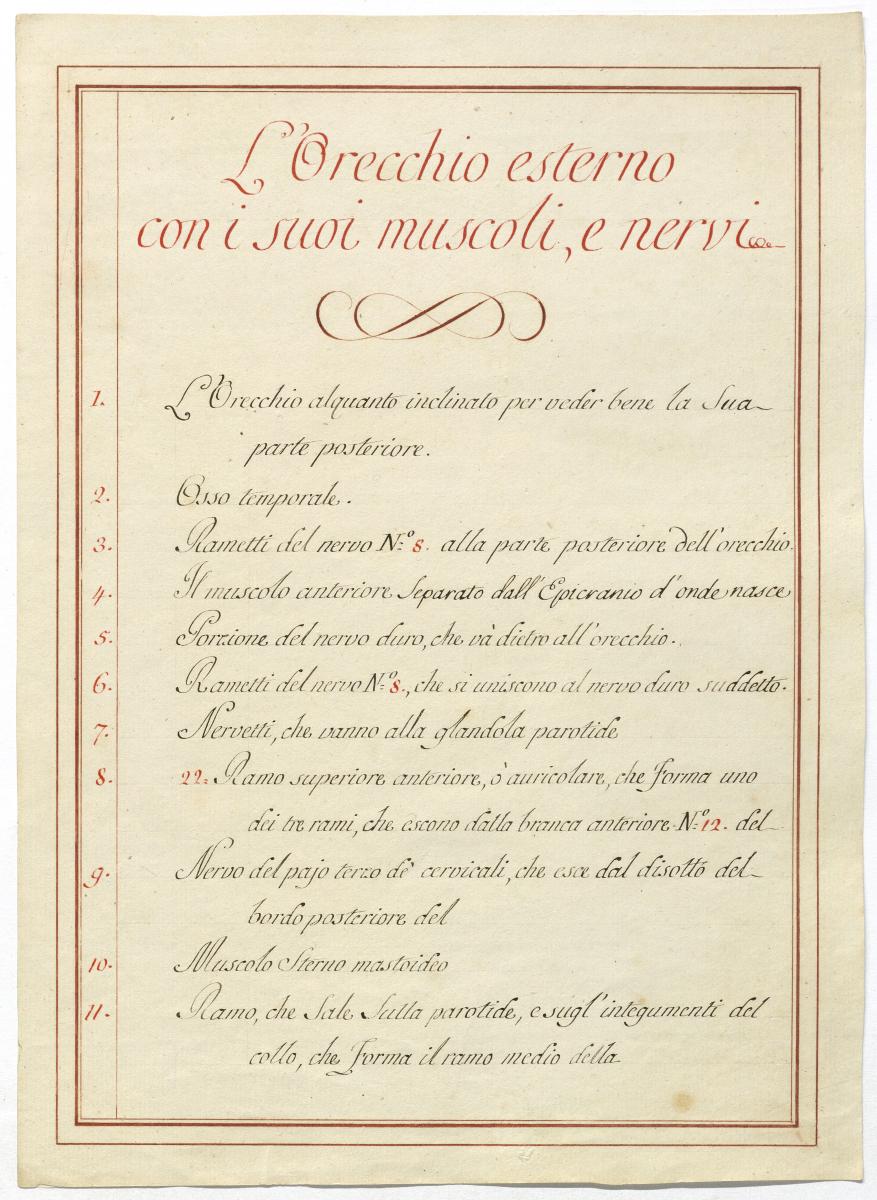 L'Orecchio esterno
con i suoi muscoli, e nervi
1. L'Orecchio alquanto inclinato per veder bene la Sua
parte posteriore.
2. Osso temporale.
3. Rametti del nervo N.º 8. alla parte posteriore dell'orecchio.
4. Il muscolo anteriore Separato dall'Epicranio d'onde nasce
5. Porzione del nervo duro, che và dietro all'orecchio.
6. Rametti del nervo N.º 8., che si uniscono al nervo duro suddetto.
7. Nervetti, che vanno alla glandola parotide
8. 22. Ramo superiore anteriore, ò auricolare, che forma uno
dei tre rami, che escono dalla branca anteriore N.º 12. del
9. Nervo del pajo terzo de' cervicali, che esce dal disotto del
bordo posteriore del
10. Muscolo Sterno mastoideo
11. Ramo, che Sale Sulla parotide, e sugl'integumenti del
collo, che forma il ramo medio della